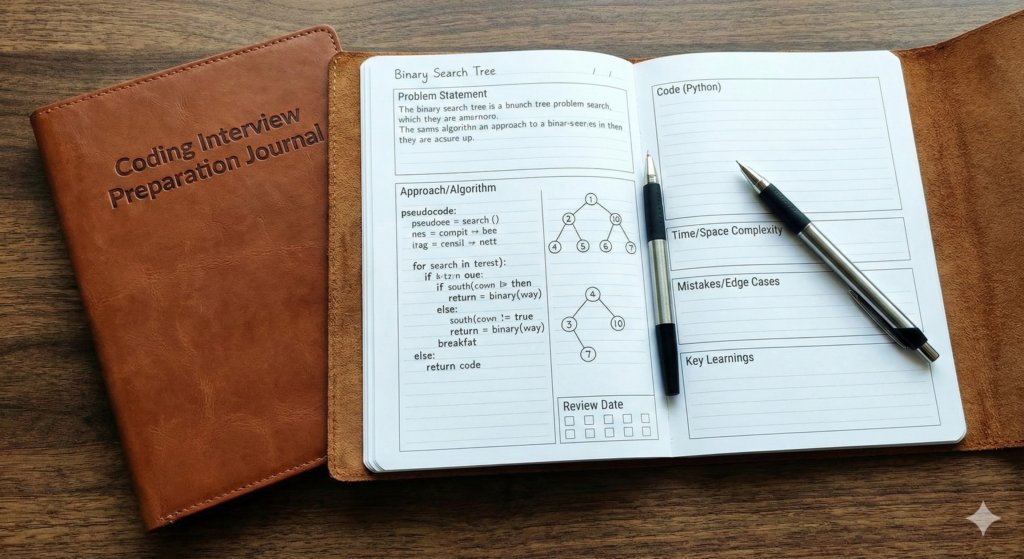 Coding Interview
Preparation Journal
Binary Search Tree
/ /
Problem Statement
The binary search tree is a bnunch tree problem search,
which they are amørnoro.
The sams algorithn an approach to a binar-see:es in then
they are acsure up.
Approach/Algorithm
pseudocode:
pseudoee = search ()
nes = compit → bee
irag = censil → nett
for search in terest):
if oue:
if south(cown then
return = binary(way)
else:
south(cown != true
return = binary(way)
breakfat
else:
return code
1
2 10
4 5 6 7
4
3 10
7
Review Date
Code (Python)
Time/Space Complexity
Mistakes/Edge Cases
Key Learnings